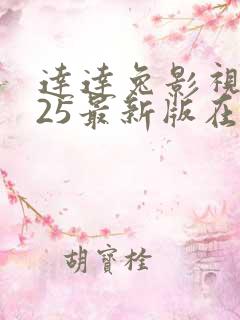 達達兔影視
25最新版在
胡寳栓